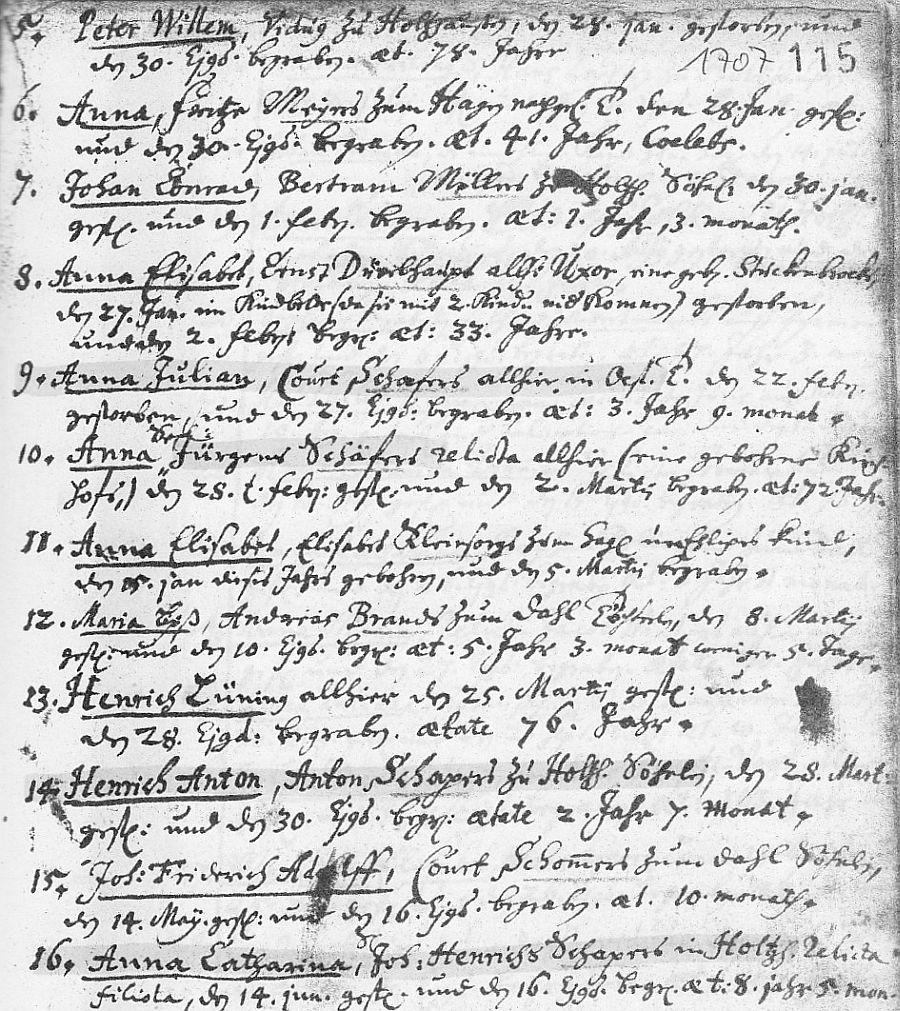 5. Peter Willem, Viduus zu Holtzhausen, den 28. jan. gestorben, und
den 30. Ejgs. begraben. æt. 78. Jahre
1707 115
6. Anna, Meyers zum Hagen nachgel. T. den 28. Jan. gest:
und den 30. Ejgs. begraben. Æt. 41. Jahr, Coelebs.
7. Johan Conrad, Bertram Möllers zu Holtzh. Söhnl: den 30. jan.
gest. und den 1. feb. begraben. æt: 1. Jahr, 3. monath.
8. Anna Elisabet, Ernst Düvelhaupt allh: Uxor, eine geb.
den 27. Jan. im Kindbette (den sie mit 2. Kind. nied'kommen) gestorben,
und den 2. feb. begr: æt: 33. Jahre.
9. Anna Julian, Court Schæfers allhier in Oest. T. den 22. feb.
gestorben, und den 27. Ejgs: begraben. æt: 3. Jahr 9. monat.
10. Anna Jürgens Schäfers relicta allhier (eine gebohrne
hofs,) den 28. feb: gest. und den 2. Martij begraben. æt: 72. Jahr.
11. Anna Elisabet, Elisabet Kleinsorgs zum Hag. unehliges kind,
den 15. jan dieses Jahrs gebohren, und den 5. Martij begraben.
12. Maria, Andreas Brands zum Dahl Töchterl., den 8. Martij
gest: und den 10. Ejgs. begr: æt: 5. Jahr 3. monat weniger 5. Tage.
13. Henrich Lüning allhier den 25. Martij gest: und
den 28. Ejgd: begraben. ætate 76. Jahr.
14. Henrich Anton, Anton Schapers zu Holtzh. Söhnlein, den 28. Mart.
gest: und den 30. Ejgs. begr: ætate 2. Jahr 7. monat.
15. Joh: Friderich Adolff, Court Schommers zum Dahl Söhnlein,
den 14. May. gest: und den 16. Ejgs. begraben. æt. 10. monath.
16. Anna Catharina, Joh: Henrichs Schapers in Holtzh. relicta
filiola, den 14. jun. gest. und den 16. Ejgs. begr. æt: 8. jahr 5. mon.